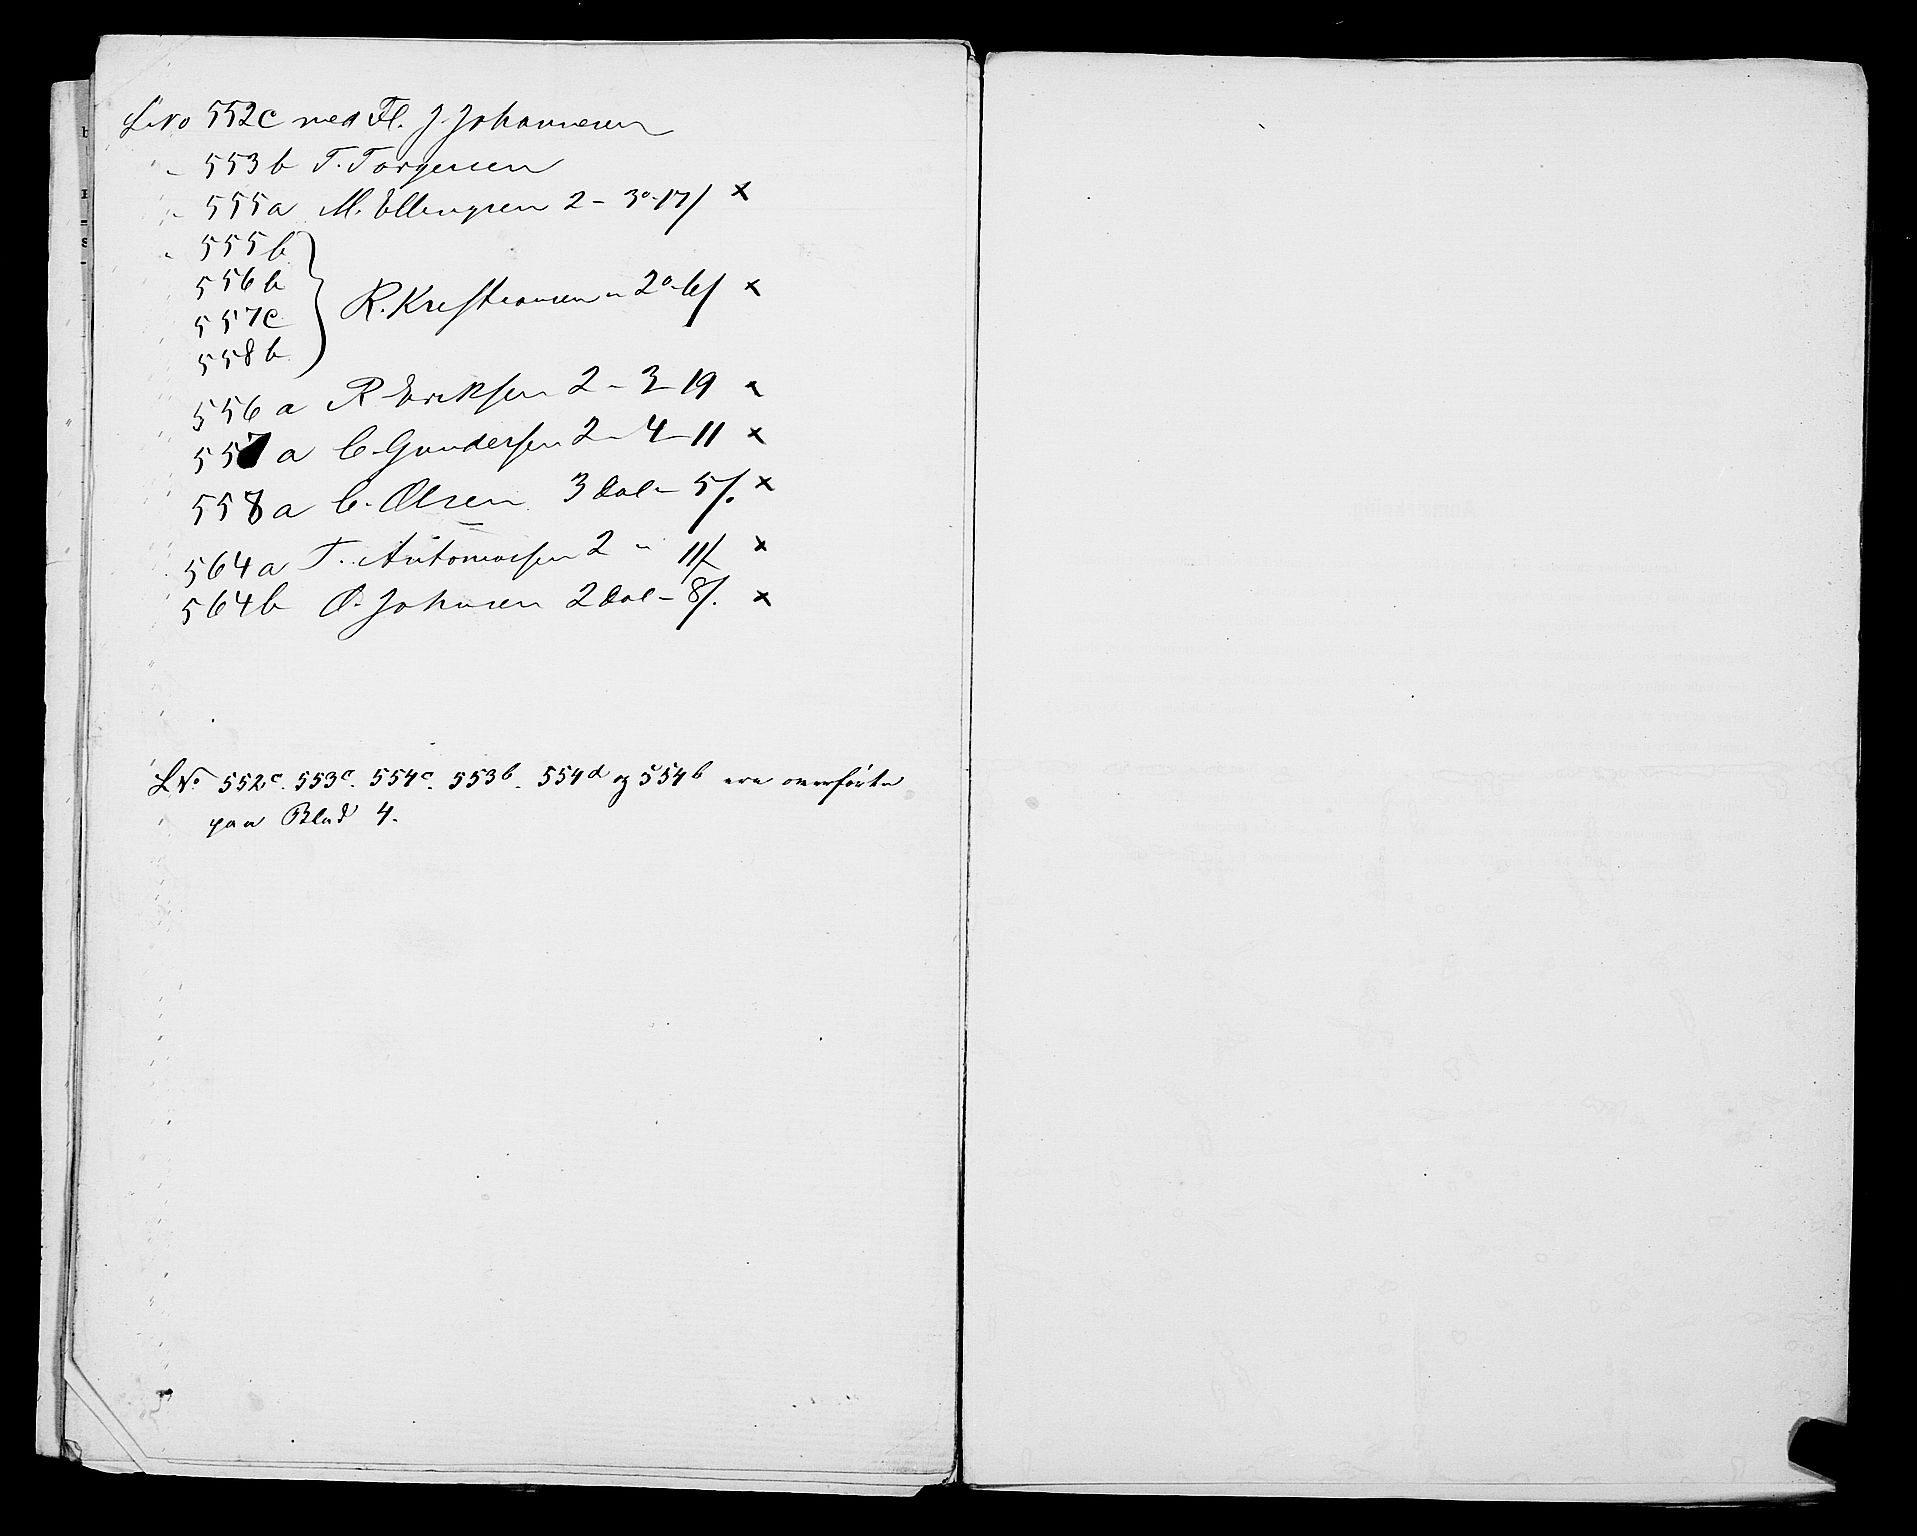 L. No 552c med Fl. J. Johannesen
" 553b T. Torgersen
" 555a M. Ellingsen 2 - 3o-17/ x
" 555b
556b
557c R. Kristiansen " 2o-6/ x
558b
556a R. Eriksen 2 - 3 - 19 x
557a C. Gundersen 2 - 4 - 11 x
558a C. Olsen 3 Dal - 5/. x
564a T. Antonoesen 2 " 11/ x
564b O. Johnsen 2 Dal - 8/. x
L No 552c. 553c. 554c. 553b. 554d og 554b ere overførte
paa Blad 4.